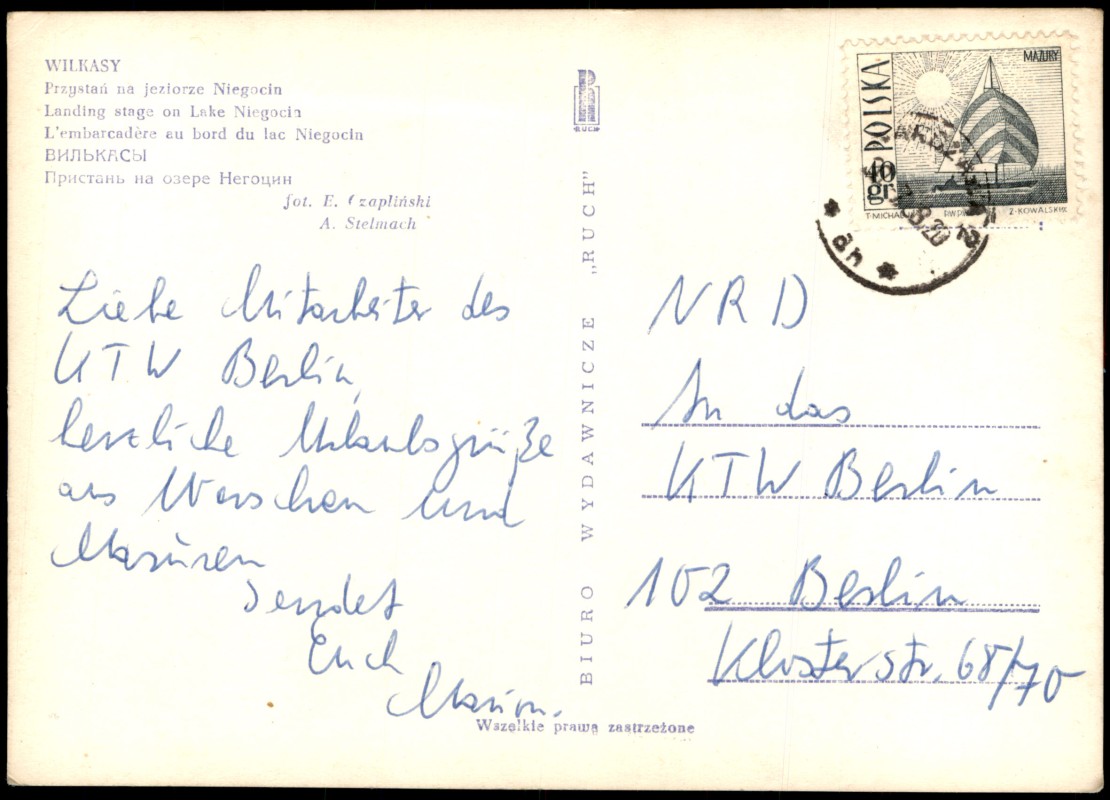 WILKASY
Przystań na jeziorze Niegocin
Landing stage on Lake Niegocin
L'embarcadère au bord du lac Niegocin
ВИЛЬКАСЫ
Пристань на озере Негоцин
fot. E. Czapliński
A. Stelmach
Liebe Mitarbeiter des
KTW Berlin,
herzliche Urlaubsgrüße
aus Warschau und
Masuren
sendet
Euch
Marion.
RUCH
BIURO WYDAWNICZE „RUCH"
Wszelkie prawa zastrzeżone
MAZURY
POLSKA
40 gr
T-MICHAL
PWPW
Z-KOWALSKI
NRD
An das
KTW Berlin
102 Berlin
Klosterstr. 68/70